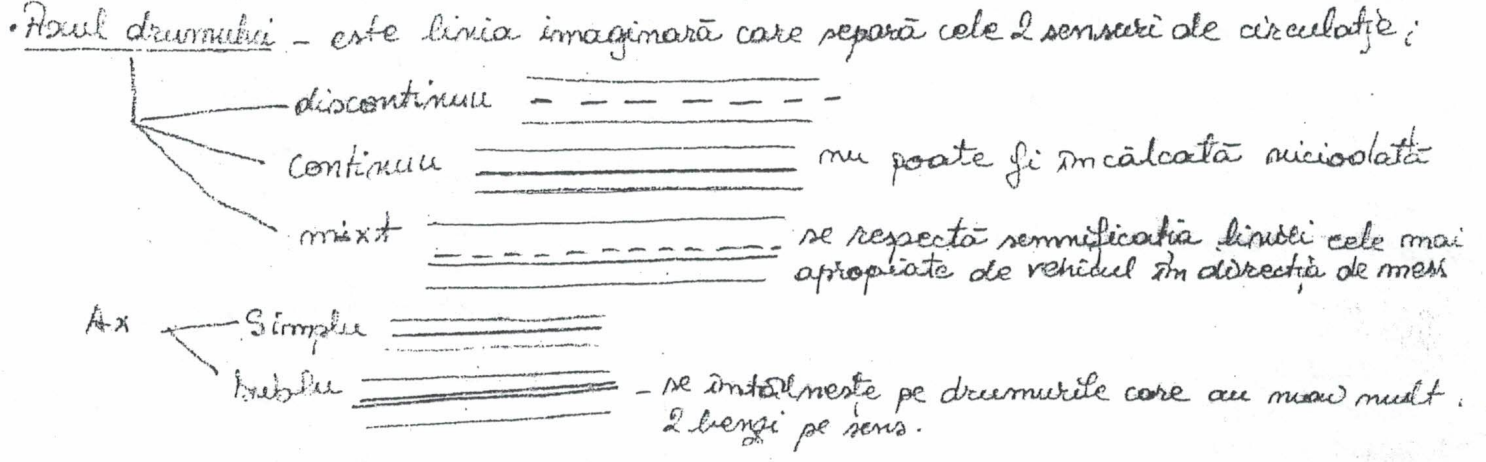 • Axul drumului - este linia imaginară care separă cele 2 sensuri de circulație;
discontinuu
continuu nu poate fi încălcată niciodată
mixt se respectă semnificatia liniei cele mai
apropiate de vehicul în direcția de mers
Ax Simplu
dublu - se întâlnește pe drumurile care au mult.
2 benzi pe sens.